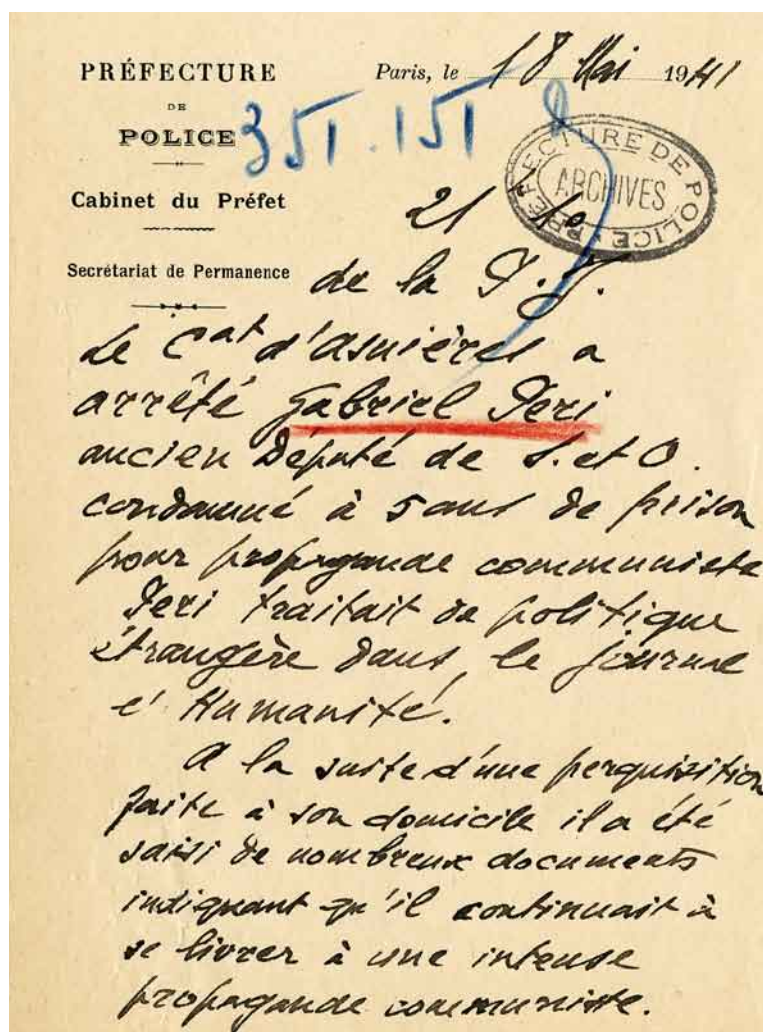 PRÉFECTURE
DE
POLICE
Cabinet du Préfet
Secrétariat de Permanence
Paris, le 18 Mai 1941
351.151
PRÉFECTURE DE POLICE
ARCHIVES
21 h
de la P.J.
Le Cat d'asnières a
arrêté Gabriel Peri
ancien Député de S. et O.
condamné à 5 ans de prison
pour propagande communiste
Peri traitait de politique
étrangère dans le journal
l'Humanité.
A la suite d'une perquisition
faite à son domicile il a été
saisi de nombreux documents
indiquant qu'il continuait à
se livrer à une intense
propagande communiste.